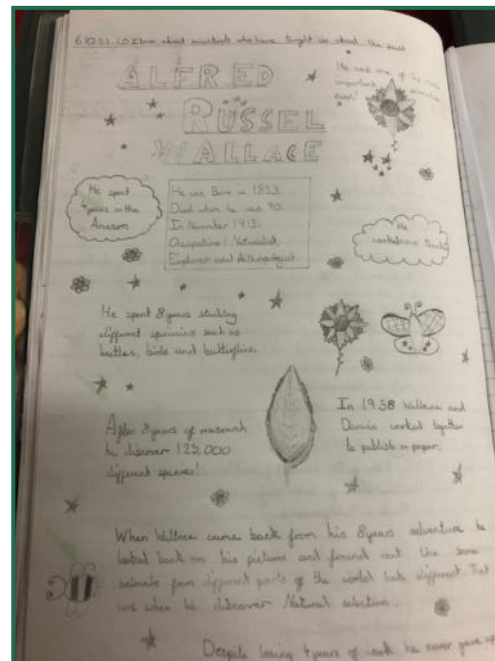 6.10.21 LO I know about scientists who have taught us about the past
He was one of the most
important scientists
ever!
ALFRED
RUSSEL
WALLACE
He spent
4 years in the
Amazon
He was Born in 1823.
Died when he was 90.
In November 1913.
Occupations: Naturalist,
Explorer and Anthropologist.
He
He spent 8 years studying
different species such as
beetles, birds and butterflies.
After 8 years of research
he discover 125,000
different species!
In 1958 Wallace and
Darwin worked together
to publish a paper.
When Wallace came back from his 8 years adventure he
looked back on his pictures and found out the same
animals from different parts of the world look different. That
was when he discover Natural selection.
Despite losing 4 years of work he never gave up